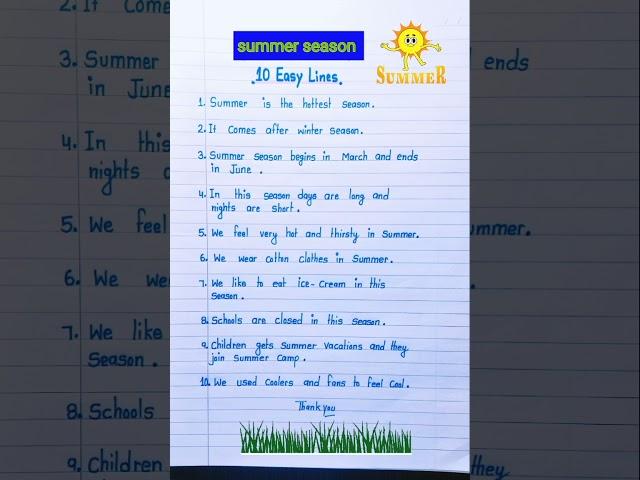 summer season
SUMMER
.10 Easy Lines.
1. Summer is the hottest season.
2. It Comes after winter season.
3. Summer season begins in March and ends
in June.
4. In this season days are long and
nights are short.
5. We feel very hot and thirsty in Summer.
6. We wear cotton clothes in Summer.
7. We like to eat ice-Cream in this
season.
8. Schools are closed in this season.
9. Children gets summer vacations and they
join Summer Camp.
10. We used Coolers and fans to feel Cool.
Thank you
2. It Come
3. Summer
in June
4. In this
nights
5. We feel
6. We we
7. We like
Season.
8. Schools
9. Children
ends
ummer.
they